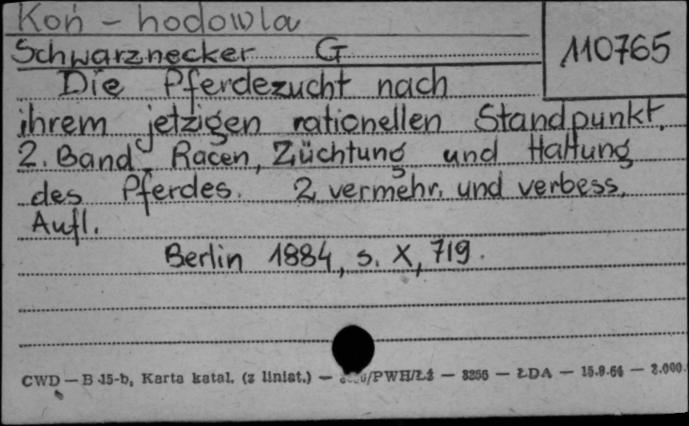 Koń - hodowla
110765
Schwarznecker G
Die Pferdezucht nach
ihrem jetzigen rationellen Standpunkt.
2. Band Racen, Züchtung und Haltung
des Pferdes. 2 vermehr. und verbess.
Aufl.
Berlin 1884, s. X, 719.
CWD — B 15-b, Karta katal. (z liniat.) — /PWH/Łź — 3256 — ŁDA — 15.9.64 — 2.000.